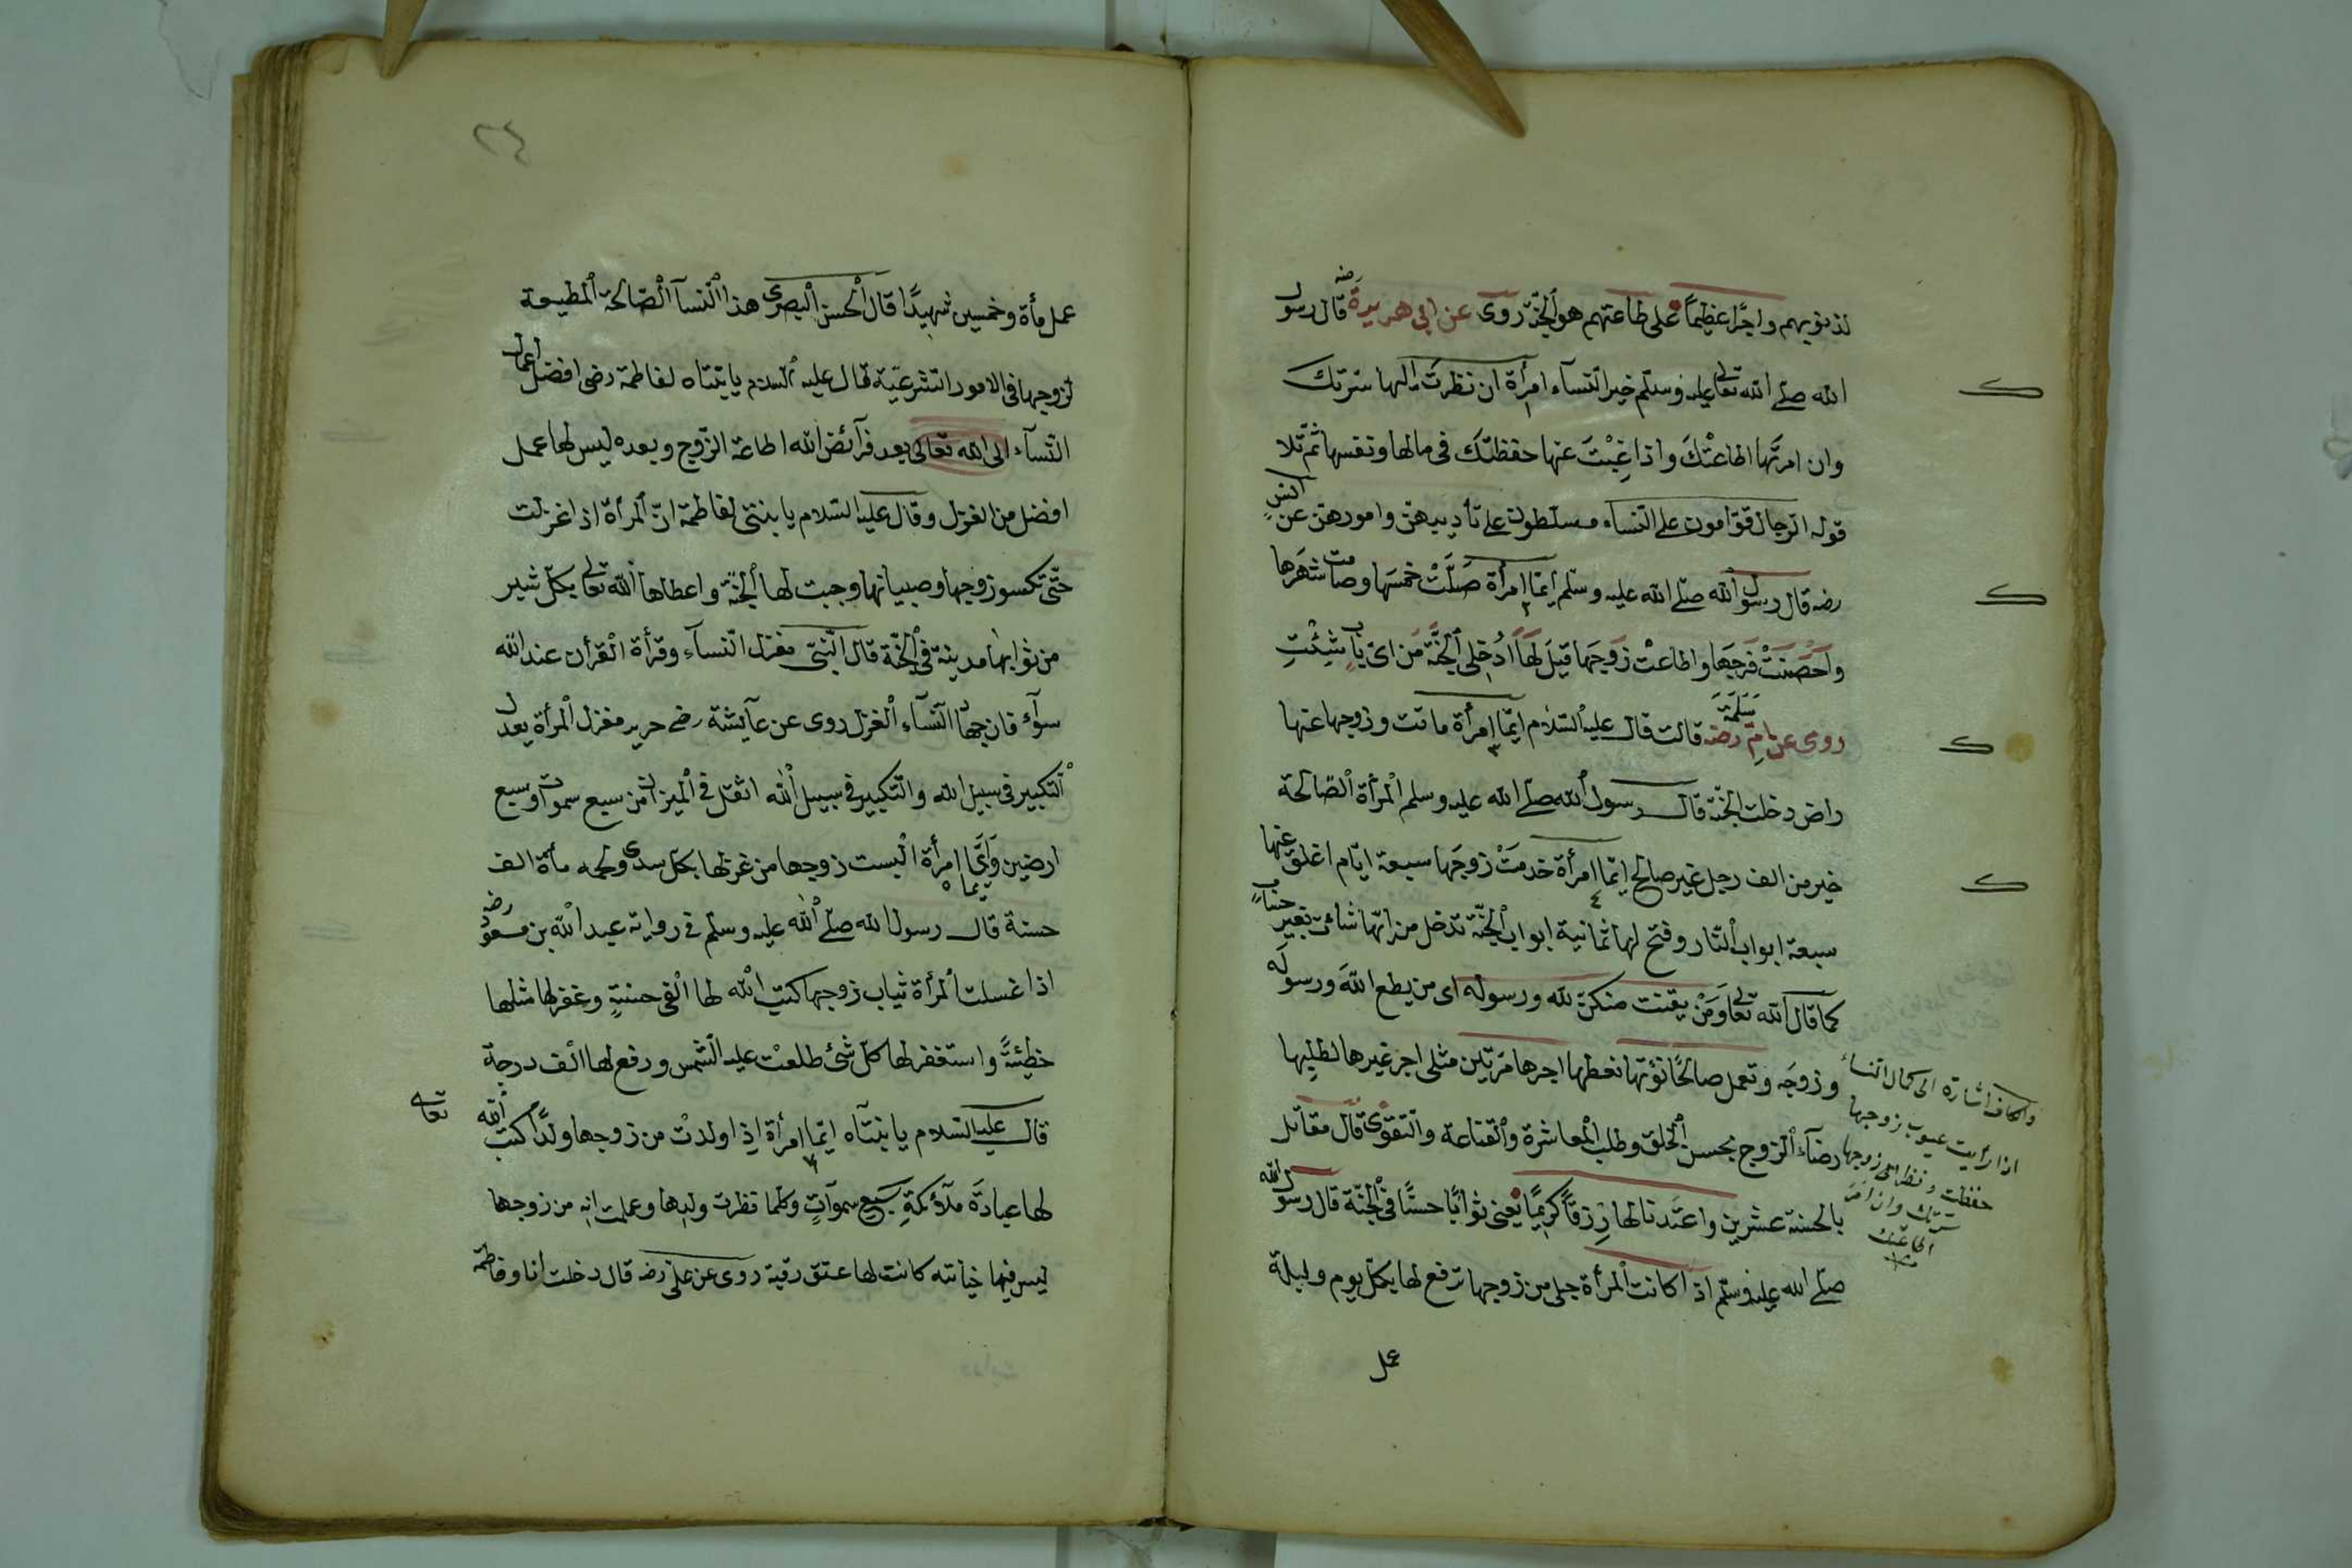 لذنوبهم واجرًا عظيمًا على طاعتهم هو الجنّة روى عن ابى هريرة رضه قال رسول
الله صلّى الله تعالى عليه وسلّم خير النّساء امرأة ان نظرت اليها سرّتك
وان امرتها اطاعتْكَ واذا غِبْتَ عنها حفظتك فى مالها ونفسها ثمّ تلا
قوله الرّجال قوّامون على النّساء مسلّطون على تأديبهنّ وامورهنّ عن انسٍ
رضه قال رسول الله صلّى الله عليه وسلّم ايّما امرأة صَلَّتْ خمسَها وصامت شهرَها
واَحْصَنَتْ فرجَها واطاعتْ زوجَها قيلَ لَهَا ادْخلِى الجنّة مَن اىّ بابٍ شِئْتِ
روى عن امّ سَلَمَة رضه قالت قال عليه السّلام ايّما امرأة ماتت وزوجها عنها
راض دخلت الجنّة قال رسول الله صلّى الله عليه وسلم المرأة الصّالحة
خير من الف رجل غير صالح ايّما امرأة خدمَتْ زوجَها سبعة ايّام اغلق عنها
سبعة ابواب النّار وفتح لها ثمانية ابواب الجنّة تدخل من ايّها شائت بغير حسابٍ
كما قال الله تعالى وَمَنْ يقنت منكنّ لله ورسوله اى من يطع اللهَ ورسولَه
وزوجَه وتعمل صالحًا نؤتها نعطها اجرها مرّتين مثلى اجر غيرها لطلبها
رضآء الزوج بحسن الخلق وطلب المعاشرة والقناعة والتّقوى قال مقاتل
بالحسنة عشرين واعتدنا لها رزقًا كريمًا يعنى ثوابًا حسنًا فى الجنّة قال رسول الله
صلّى الله عليه وسلّم اذا كانت المرأة حبلى من زوجها ترفع لها بكلّ يوم وليلة
عمل
والكاف اشارة الى كمال النساء
اذا رأيت عيوب زوجها
حفظت زوجها
سرّتك وان امر
اطاعتك
٢٤
عمل مأة وخمسين شهيدًا قال الحسن البصرى هذا النّسآ الصّالحة المطيعة
لزوجها فى الامور الشّرعيّة قال عليه السّلام يا بنتاه لفاطمة رضى افضل اعمال
النّسآء الى الله تعالى بعد فرآئض الله اطاعة الزّوج وبعده ليس لها عمل
افضل من الغزل وقال عليه السّلام يا بنتى لفاطمة انّ المرأة اذا غزلت
حتّى تكسو زوجها وصبيانها وجبت لها الجنّة واعطاها الله تعالى بكلّ شبر
من ثوابها مدينة فى الجنّة قال النّبىّ مغزل النّسآء وقرأة القرأن عند الله
سوآء فان جهاد النّسآء الغزل روى عن عآيشة رضى حرير مغزل المرأة يعدل
التكبير فى سبيل الله والتّكبير فى سبيل الله اثقل فى الميزان من سبع سموات وسبع
ارضين وايّما امرأة البست زوجها من غزلها بكلّ سدى ولحمه مأة الف
حسنة قال رسول الله صلّى الله عليه وسلّم فى رواية عبد الله بن مسعود رضه
اذا غسلت المرأة ثياب زوجها كتب الله لها الفى حسنةٍ وغفر لها مثلها
خطيئةً واستغفر لها كلّ شئ طلعت عليه الشّمس ورفع لها الف درجة
قال عليه السّلام يا بنتاه ايّما امرأة اذ اولدتْ من زوجها ولدًا كتب الله تعالى
لها عبادَةَ ملآئكةِ سبع سموآتٍ وكلّما نظرت ولدها وعلمت انه من زوجها
ليس فيها خيانته كانت لها عتق رقبة روى عن علىّ رضه قال دخلت انا وفاطمة